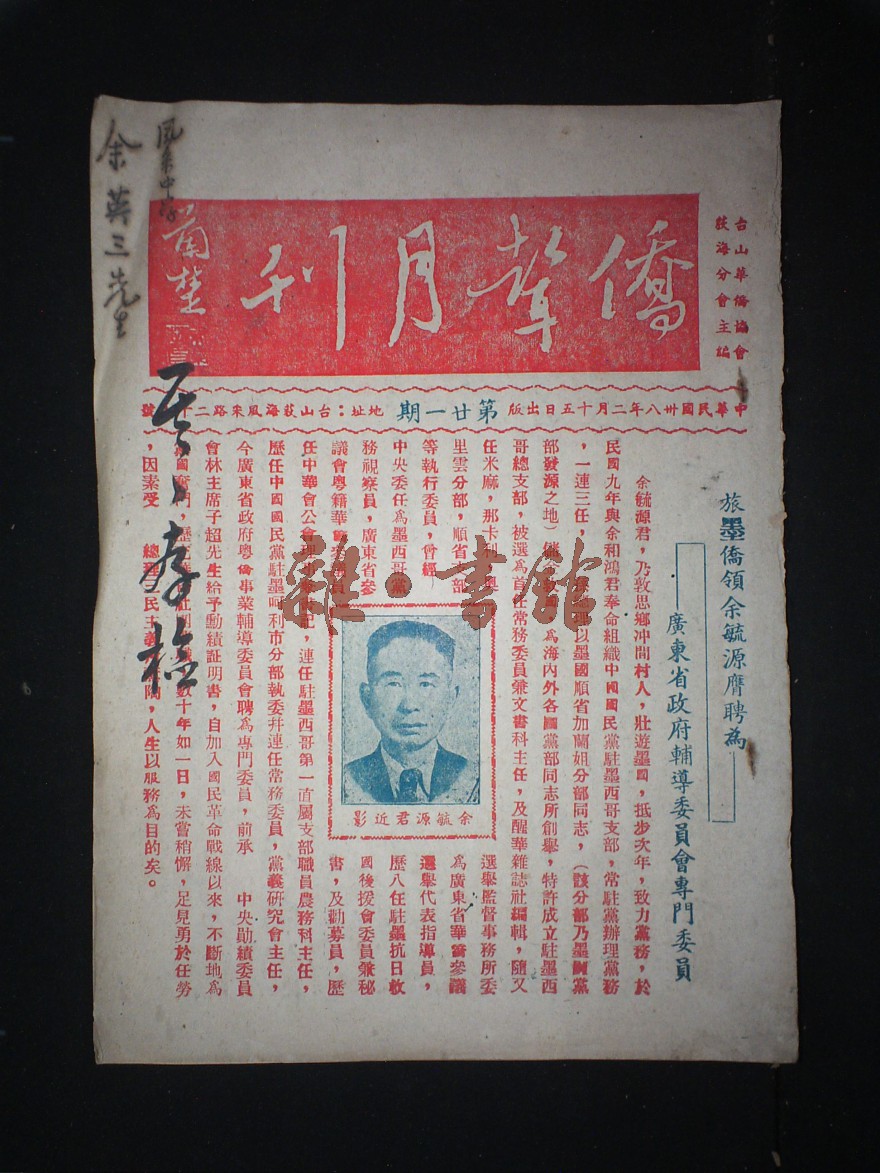 台山華僑協會
荻海分會主編
僑聲月刊
中華民國卅八年二月十五日出版 第廿一期 地址：台山荻海風釆路二十 號
旅墨僑領余毓源膺聘為
廣東省政府輔導委員會專門委員
余毓源君，乃敦思鄉冲間村人，壯遊墨國，抵步次年，致力黨務，於
民國九年與余和鴻君奉命組織中國國民黨駐墨西哥支部，常駐黨辦理黨務
，一連三任， 以墨國順省加蘭姐分部同志，（該分部乃墨國黨
部發源之地） 為海內外各國黨部同志所創舉，特許成立駐墨西
哥總支部，被選為首任常務委員兼文書科主任，及醒華雜誌社編輯，隨又
任米麻，那卡利，奧
里雲分部，順省 部
等執行委員，曾經
中央委任為墨西哥黨
務視察員，廣東省參
議會粵籍華
選舉監督事務所委
為廣東省華僑參議
選舉代表指導員，
歷八任駐墨抗日救
國後援會委員兼秘
書，及勸募員，歷
任中華會公會 記，連任駐墨西哥第一直屬支部職員農務科主任，
歷任中國國民黨駐墨 利市分部執委并連任常務委員，黨義研究會主任，
今廣東省政府粵僑事業輔導委員會聘為專門委員，前承 中央勛績委員
會林主席子超先生給予勳績証明書，自加入國民革命戰線以來，不斷地為
數十年如一日，未嘗稍懈，足見勇於任勞
，因素受 總理 民主義 ，人生以服務為目的矣。
余毓源君近影
風釆中學
余英三先生
雜·書館